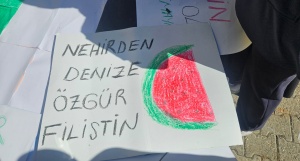 NEHİRDEN
DENİZE
ÖZGÜR
FİLİSTİN